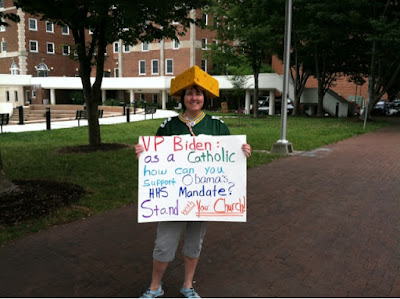 VP Biden:
as a Catholic
how can you
support Obama's
HHS Mandate?
Stand with Your Church!